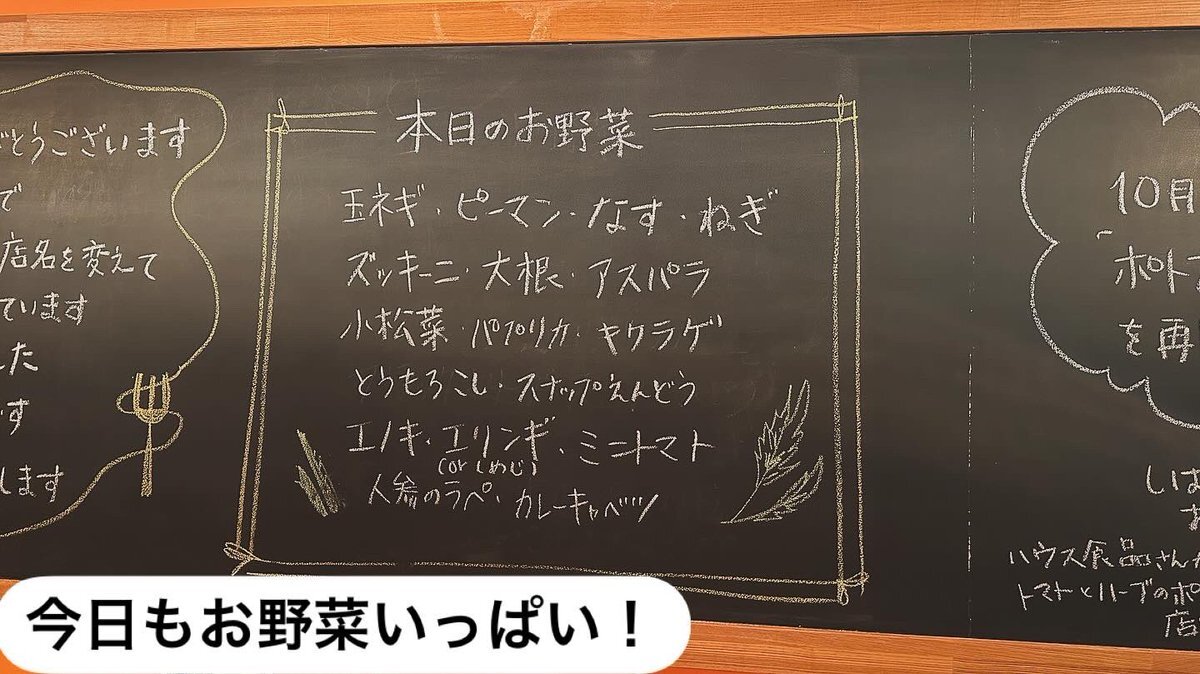 とうございます
で
店名を変えて
ています
した
す
します
本日のお野菜
玉ネギ・ピーマン・なす・ねぎ
ズッキーニ・大根・アスパラ
小松菜・パプリカ・キクラゲ
とうもろこし・スナップえんどう
エノキ・エリンギ・ミニトマト
(or しめじ)
人参のラペ・カレーキャベツ
10月
ポトフ
を再
しば
ハウス食品さんが
トマトとハーブのポ
店
今日もお野菜いっぱい！